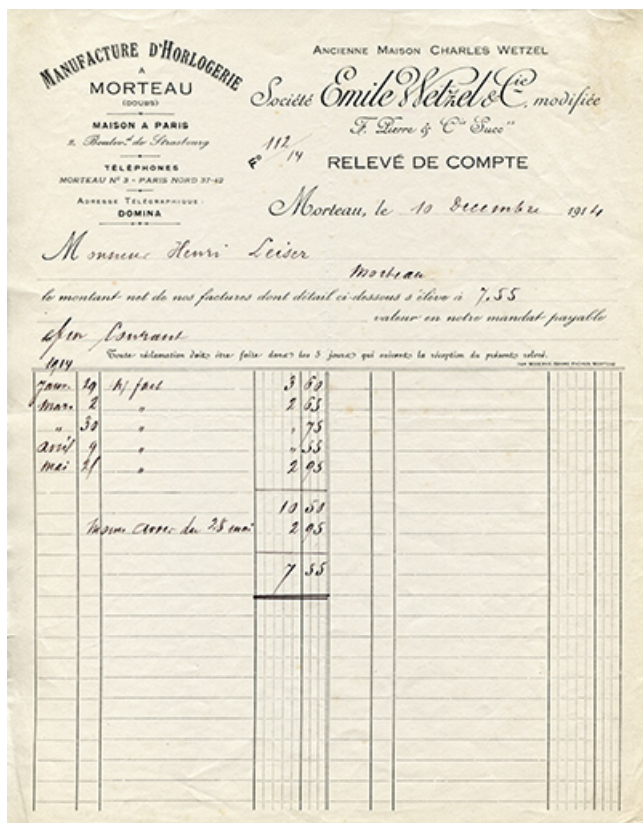 MANUFACTURE D'HORLOGERIE
A
MORTEAU
(DOUBS)
MAISON A PARIS
2, Boulevd de Strasbourg
TÉLÉPHONES
MORTEAU Nº 3 - PARIS NORD 37-42
ADRESSE TÉLÉGRAPHIQUE:
DOMINA
ANCIENNE MAISON CHARLES WETZEL
Société Emile Wetzel & Cie modifiée
F. Pierre & Cie Succrs
Fº 112/14
RELEVÉ DE COMPTE
Morteau, le 10 Decembre 1914
Monsieur Henri Leiser
Morteau
le montant net de nos factures dont détail ci-dessous s'élève à 7.55
valeur en notre mandat payable
fin Courant
Toute réclamation doit être faite dans les 5 jours qui suivent la réception du présent relevé.
1914
Janv. 29 n/ fact 3 60
Mars 2 " 2 65
" 30 " " 75
avril 9 " " 55
mai 28 " 2 95
10 50
moins du 28 mai 2 95
7 55